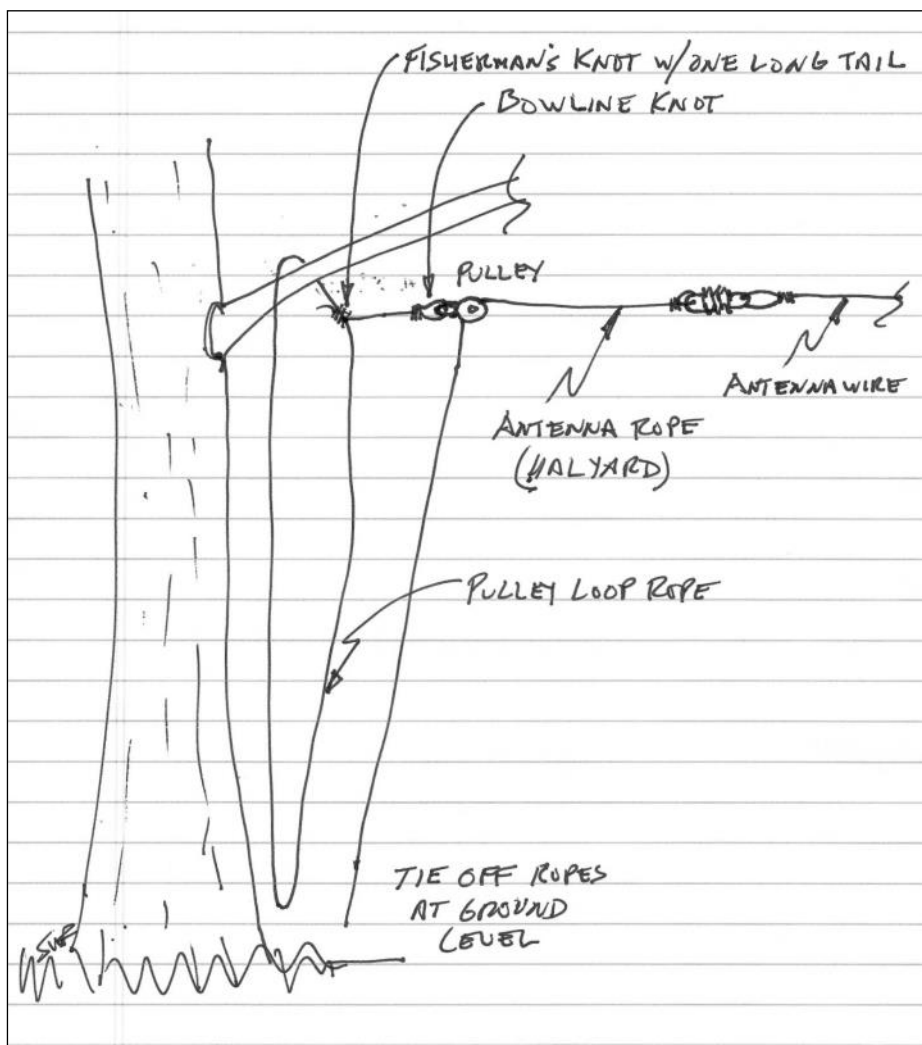 FISHERMAN'S KNOT W/ONE LONG TAIL
BOWLINE KNOT
PULLEY
ANTENNA WIRE
ANTENNA ROPE
(HALYARD)
PULLEY LOOP ROPE
TIE OFF ROPES
AT GROUND
LEVEL